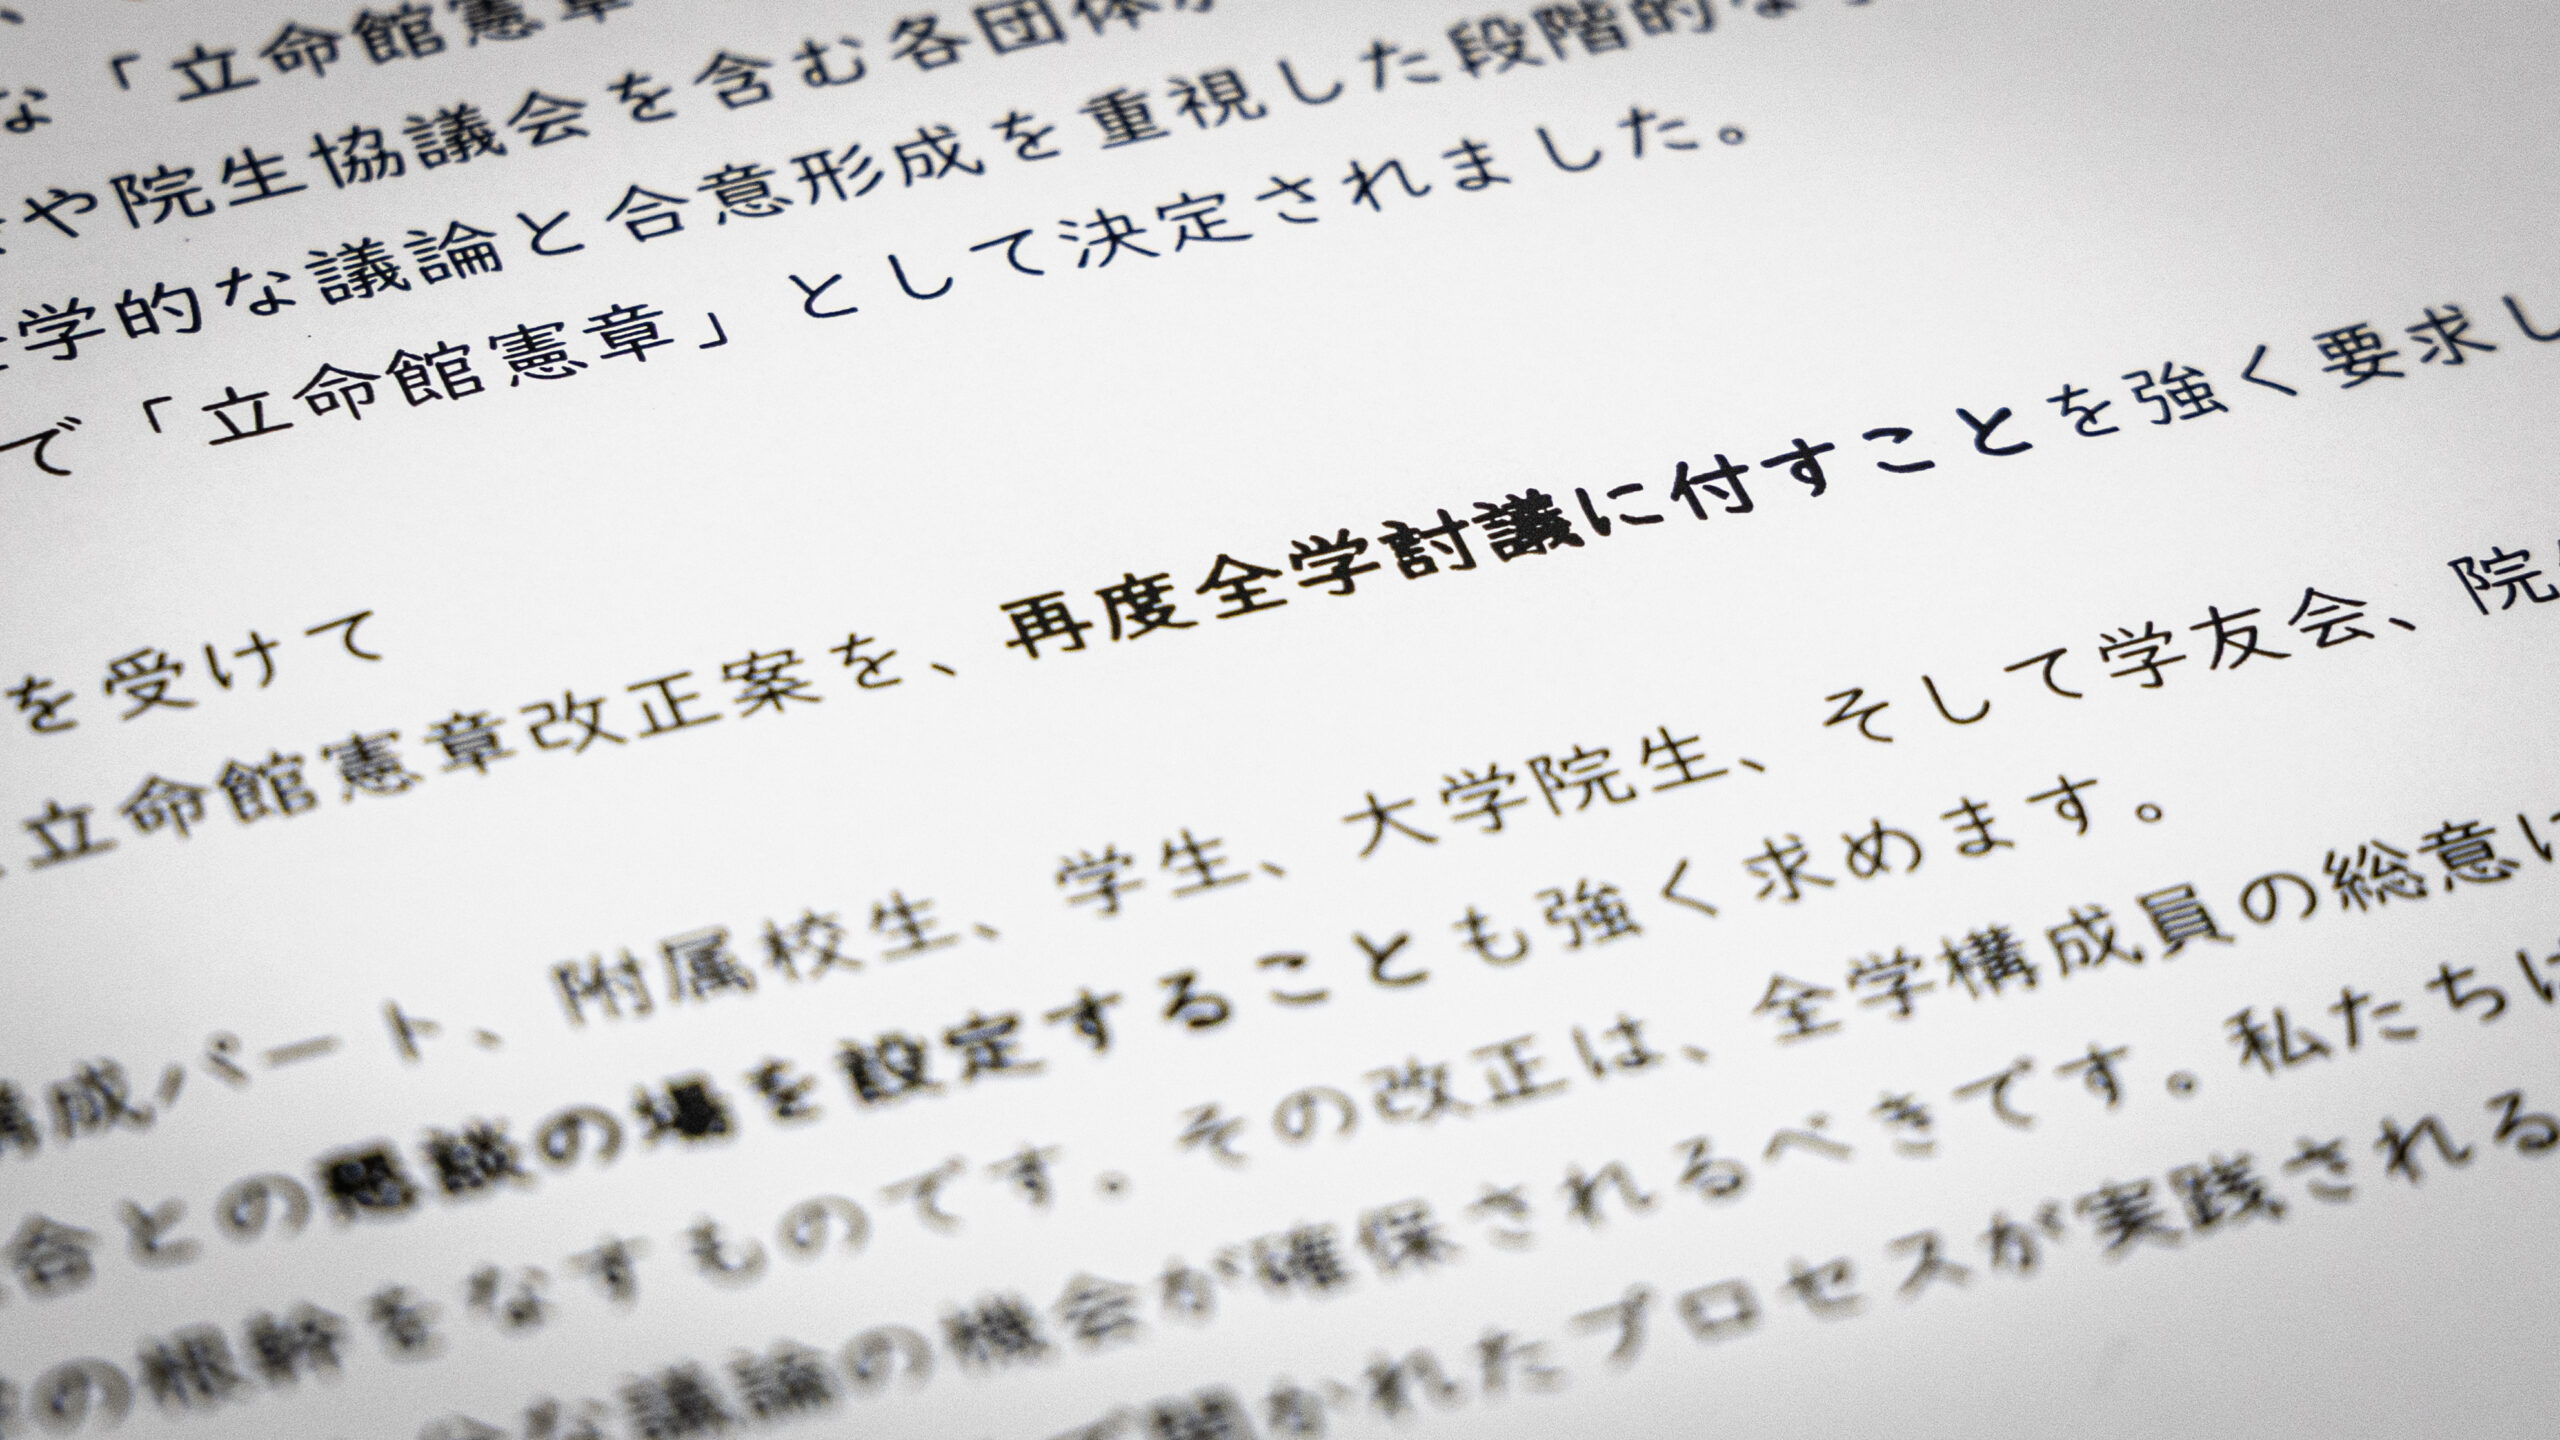 な「立命館憲章
や院生協議会を含む各団体
学的な議論と合意形成を重視した段階的な
で「立命館憲章」として決定されました。
を受けて
立命館憲章改正案を、再度全学討議に付すことを強く要求し
構成パート、附属校生、学生、大学院生、そして学友会、院
合との懇談の場を設定することも強く求めます。
の根幹をなすものです。その改正は、全学構成員の総意に
な議論の機会が確保されるべきです。私たちは
開かれたプロセスが実践される